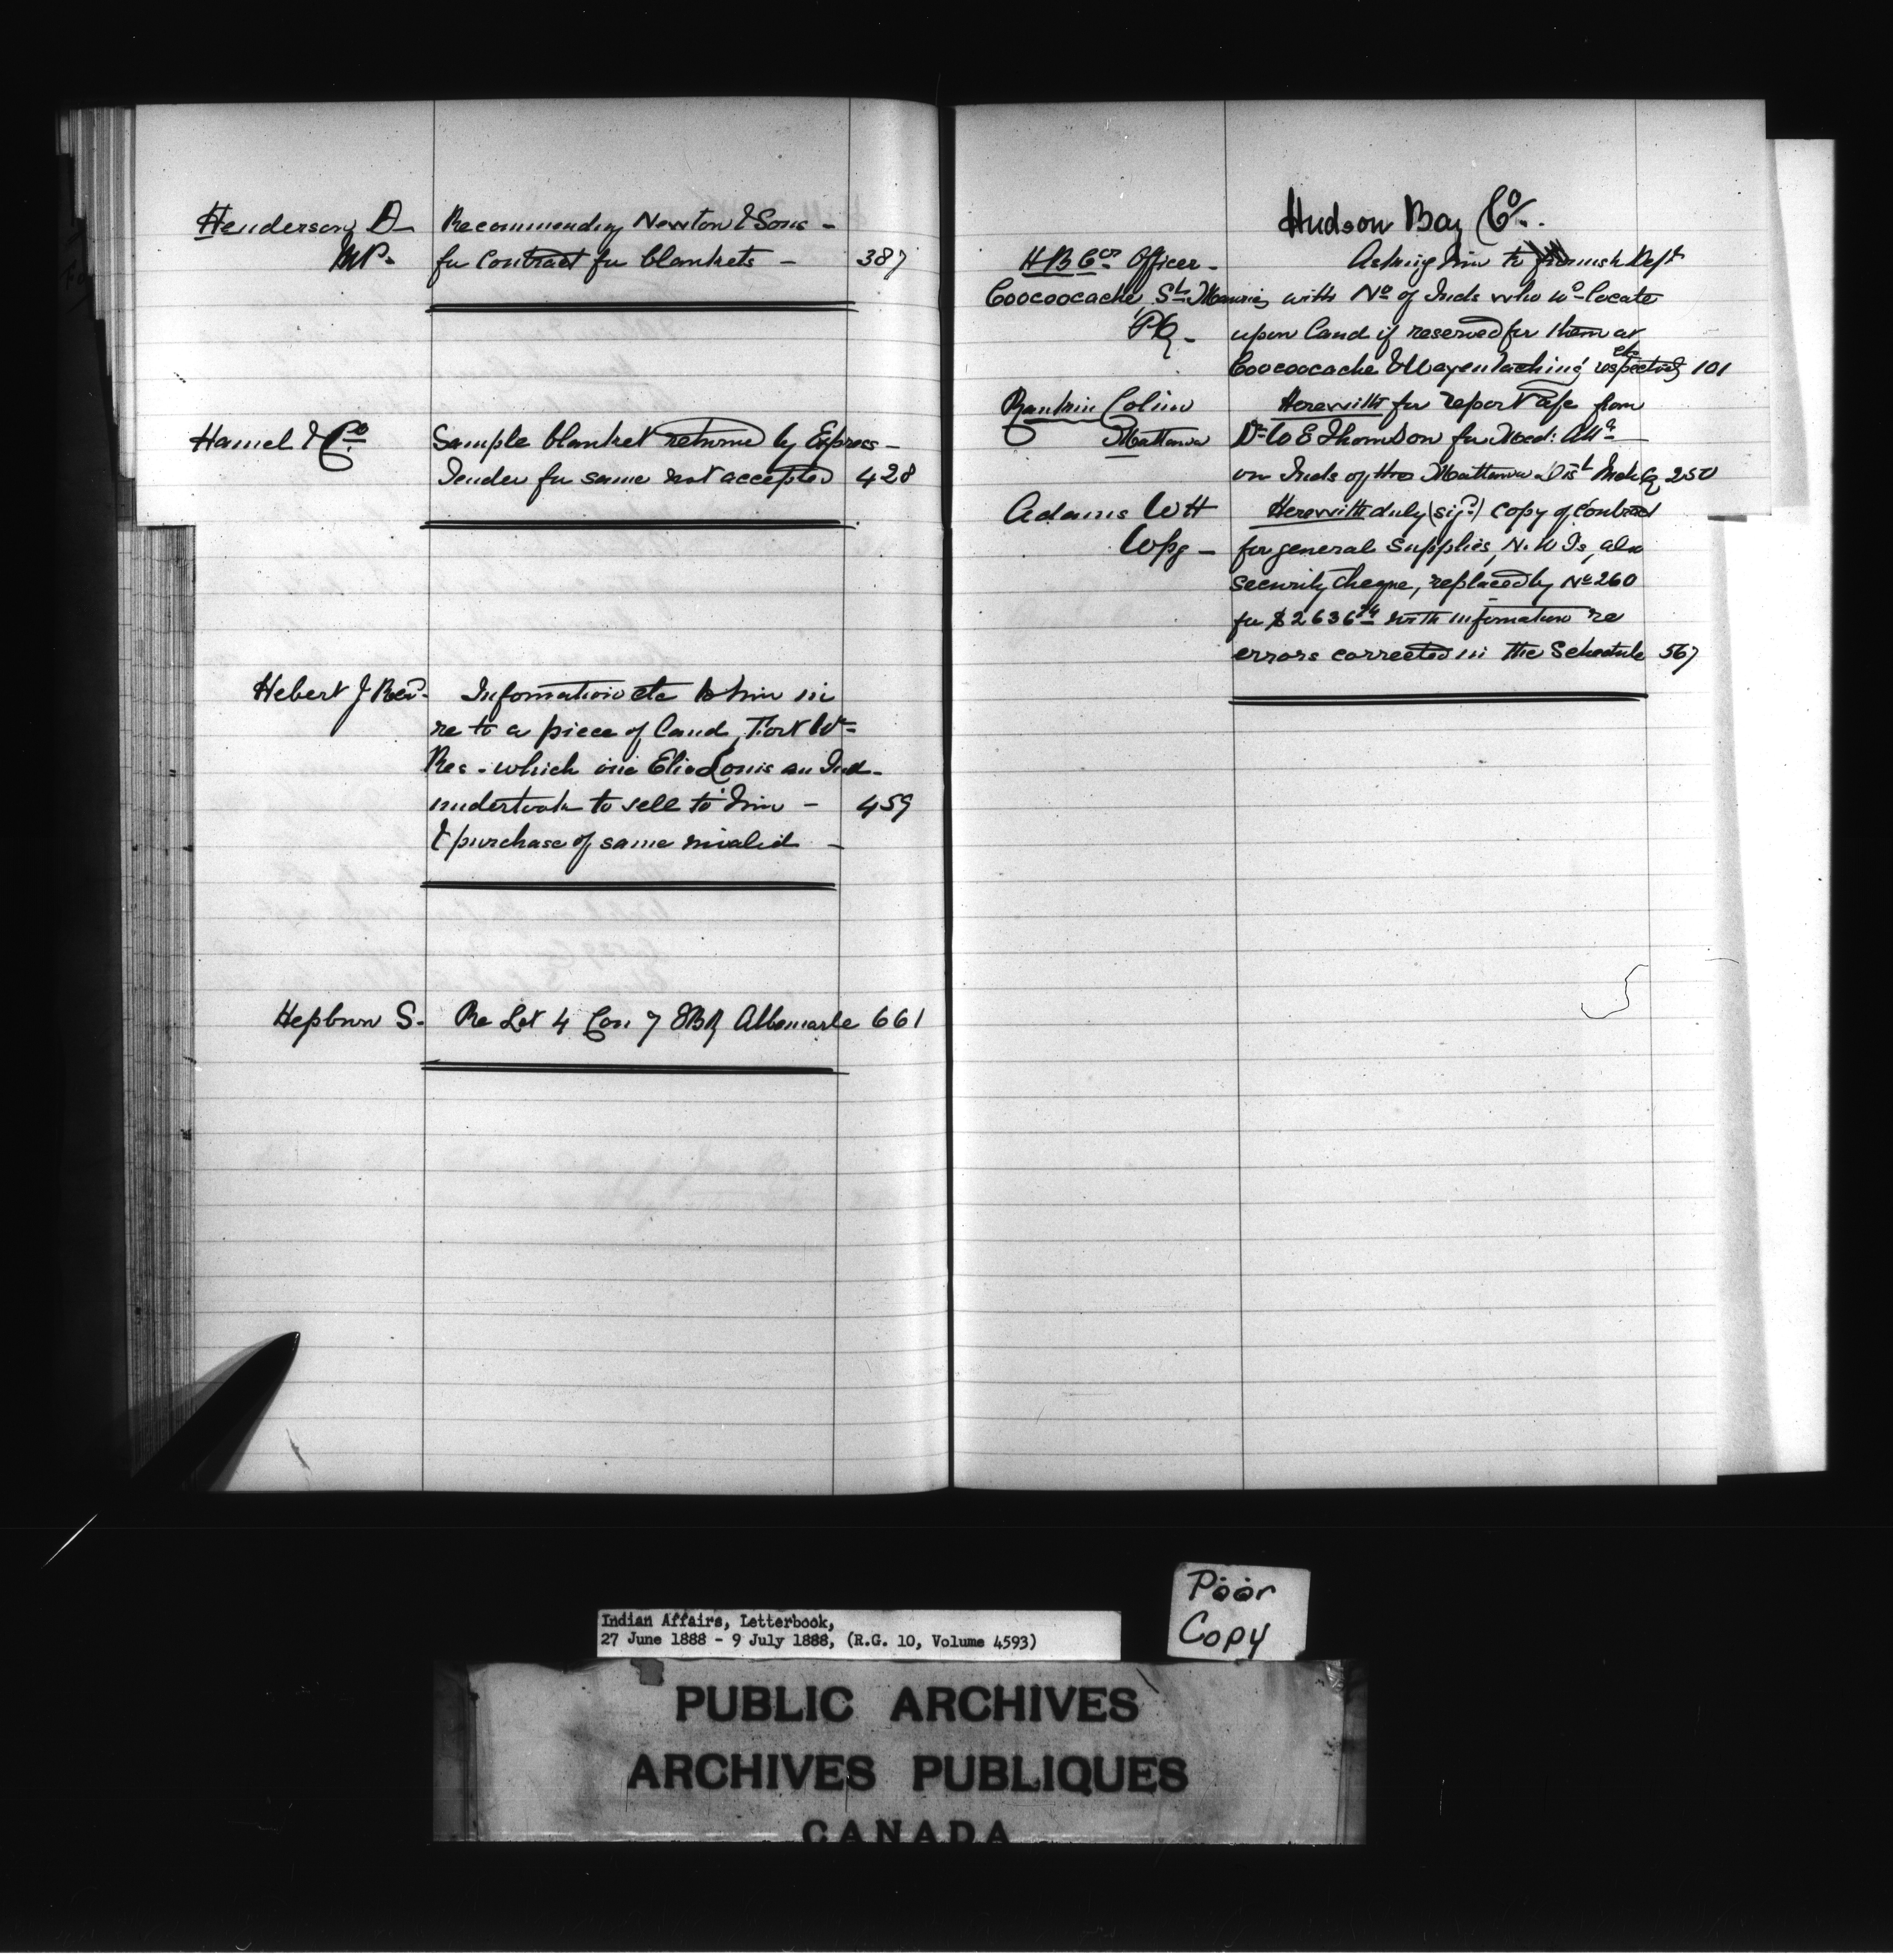 Henderson D
MP.
Recommending Newton & Sons -
for Contract for blankets - 387
Hamel & Co
Sample blanket returned by Express -
Tender for same not accepted 428
Hebert J Revd.
Information etc to him in
re to a piece of land, Fort Wm
Res. which one Elie Louis an Ind.
undertook to sell to him - 459
& purchase of same invalid -
Hepburn S. Re Lot 4 Con 7 EBR Albemarle 661
Hudson Bay Co.
H B Cos Officer -
Coocoocache, St Maurice
PQ -
Asking him to furnish Dept
with No of Inds who wd locate
upon land if reserved for them at
etc
Coocoocache & respectively 101
Rankin Colin
Mattawa
Herewith for report a/c from
Dr W E Thomson for Med: Attce
on Inds of the Mattawa Dist 250
Adams W H
Wpg -
Herewith duly (sigd) copy of Contract
for general Supplies, N. W Ts, also
security cheque, replaced by No 260
for $2636 with information re
errors corrected in the Schedule 567
Indian Affairs, Letterbook,
27 June 1888 - 9 July 1888, (R.G. 10, Volume 4593)
Poor
Copy
PUBLIC ARCHIVES
ARCHIVES PUBLIQUES
CANADA